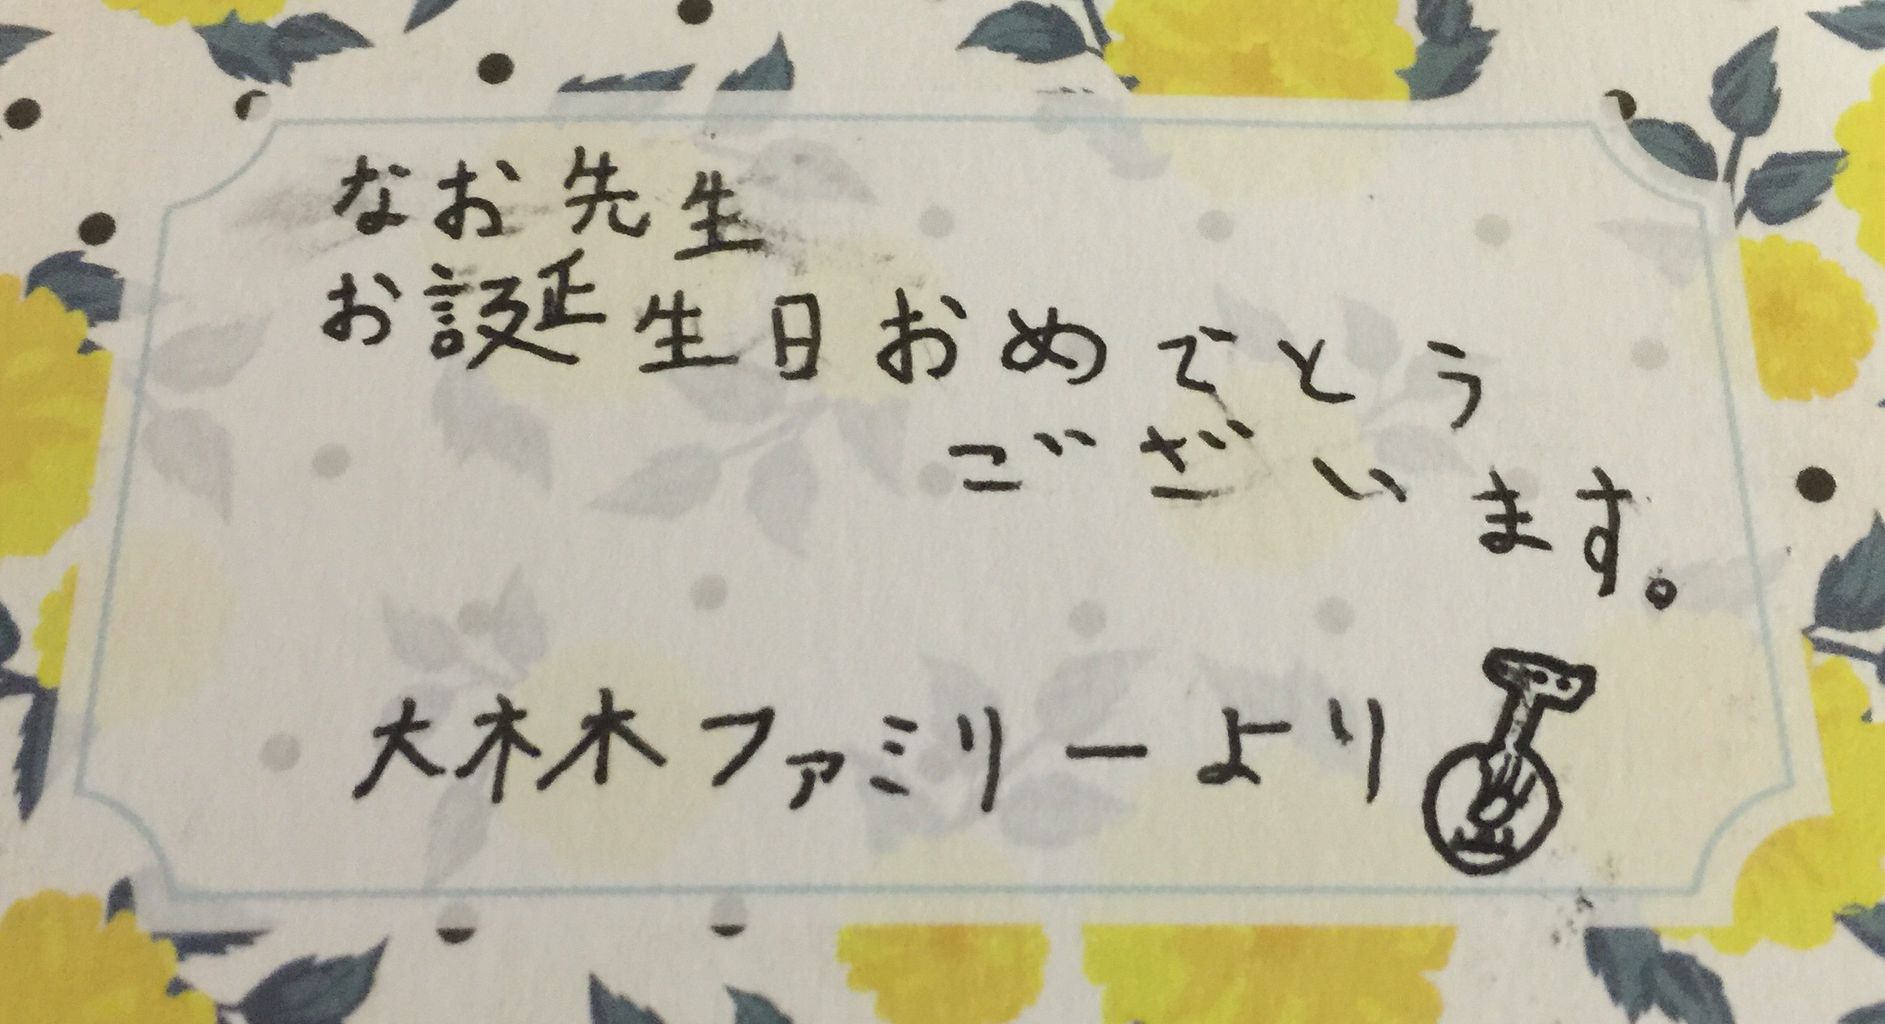 なお先生
お誕生日おめでとう
ございます。
大木木ファミリーより